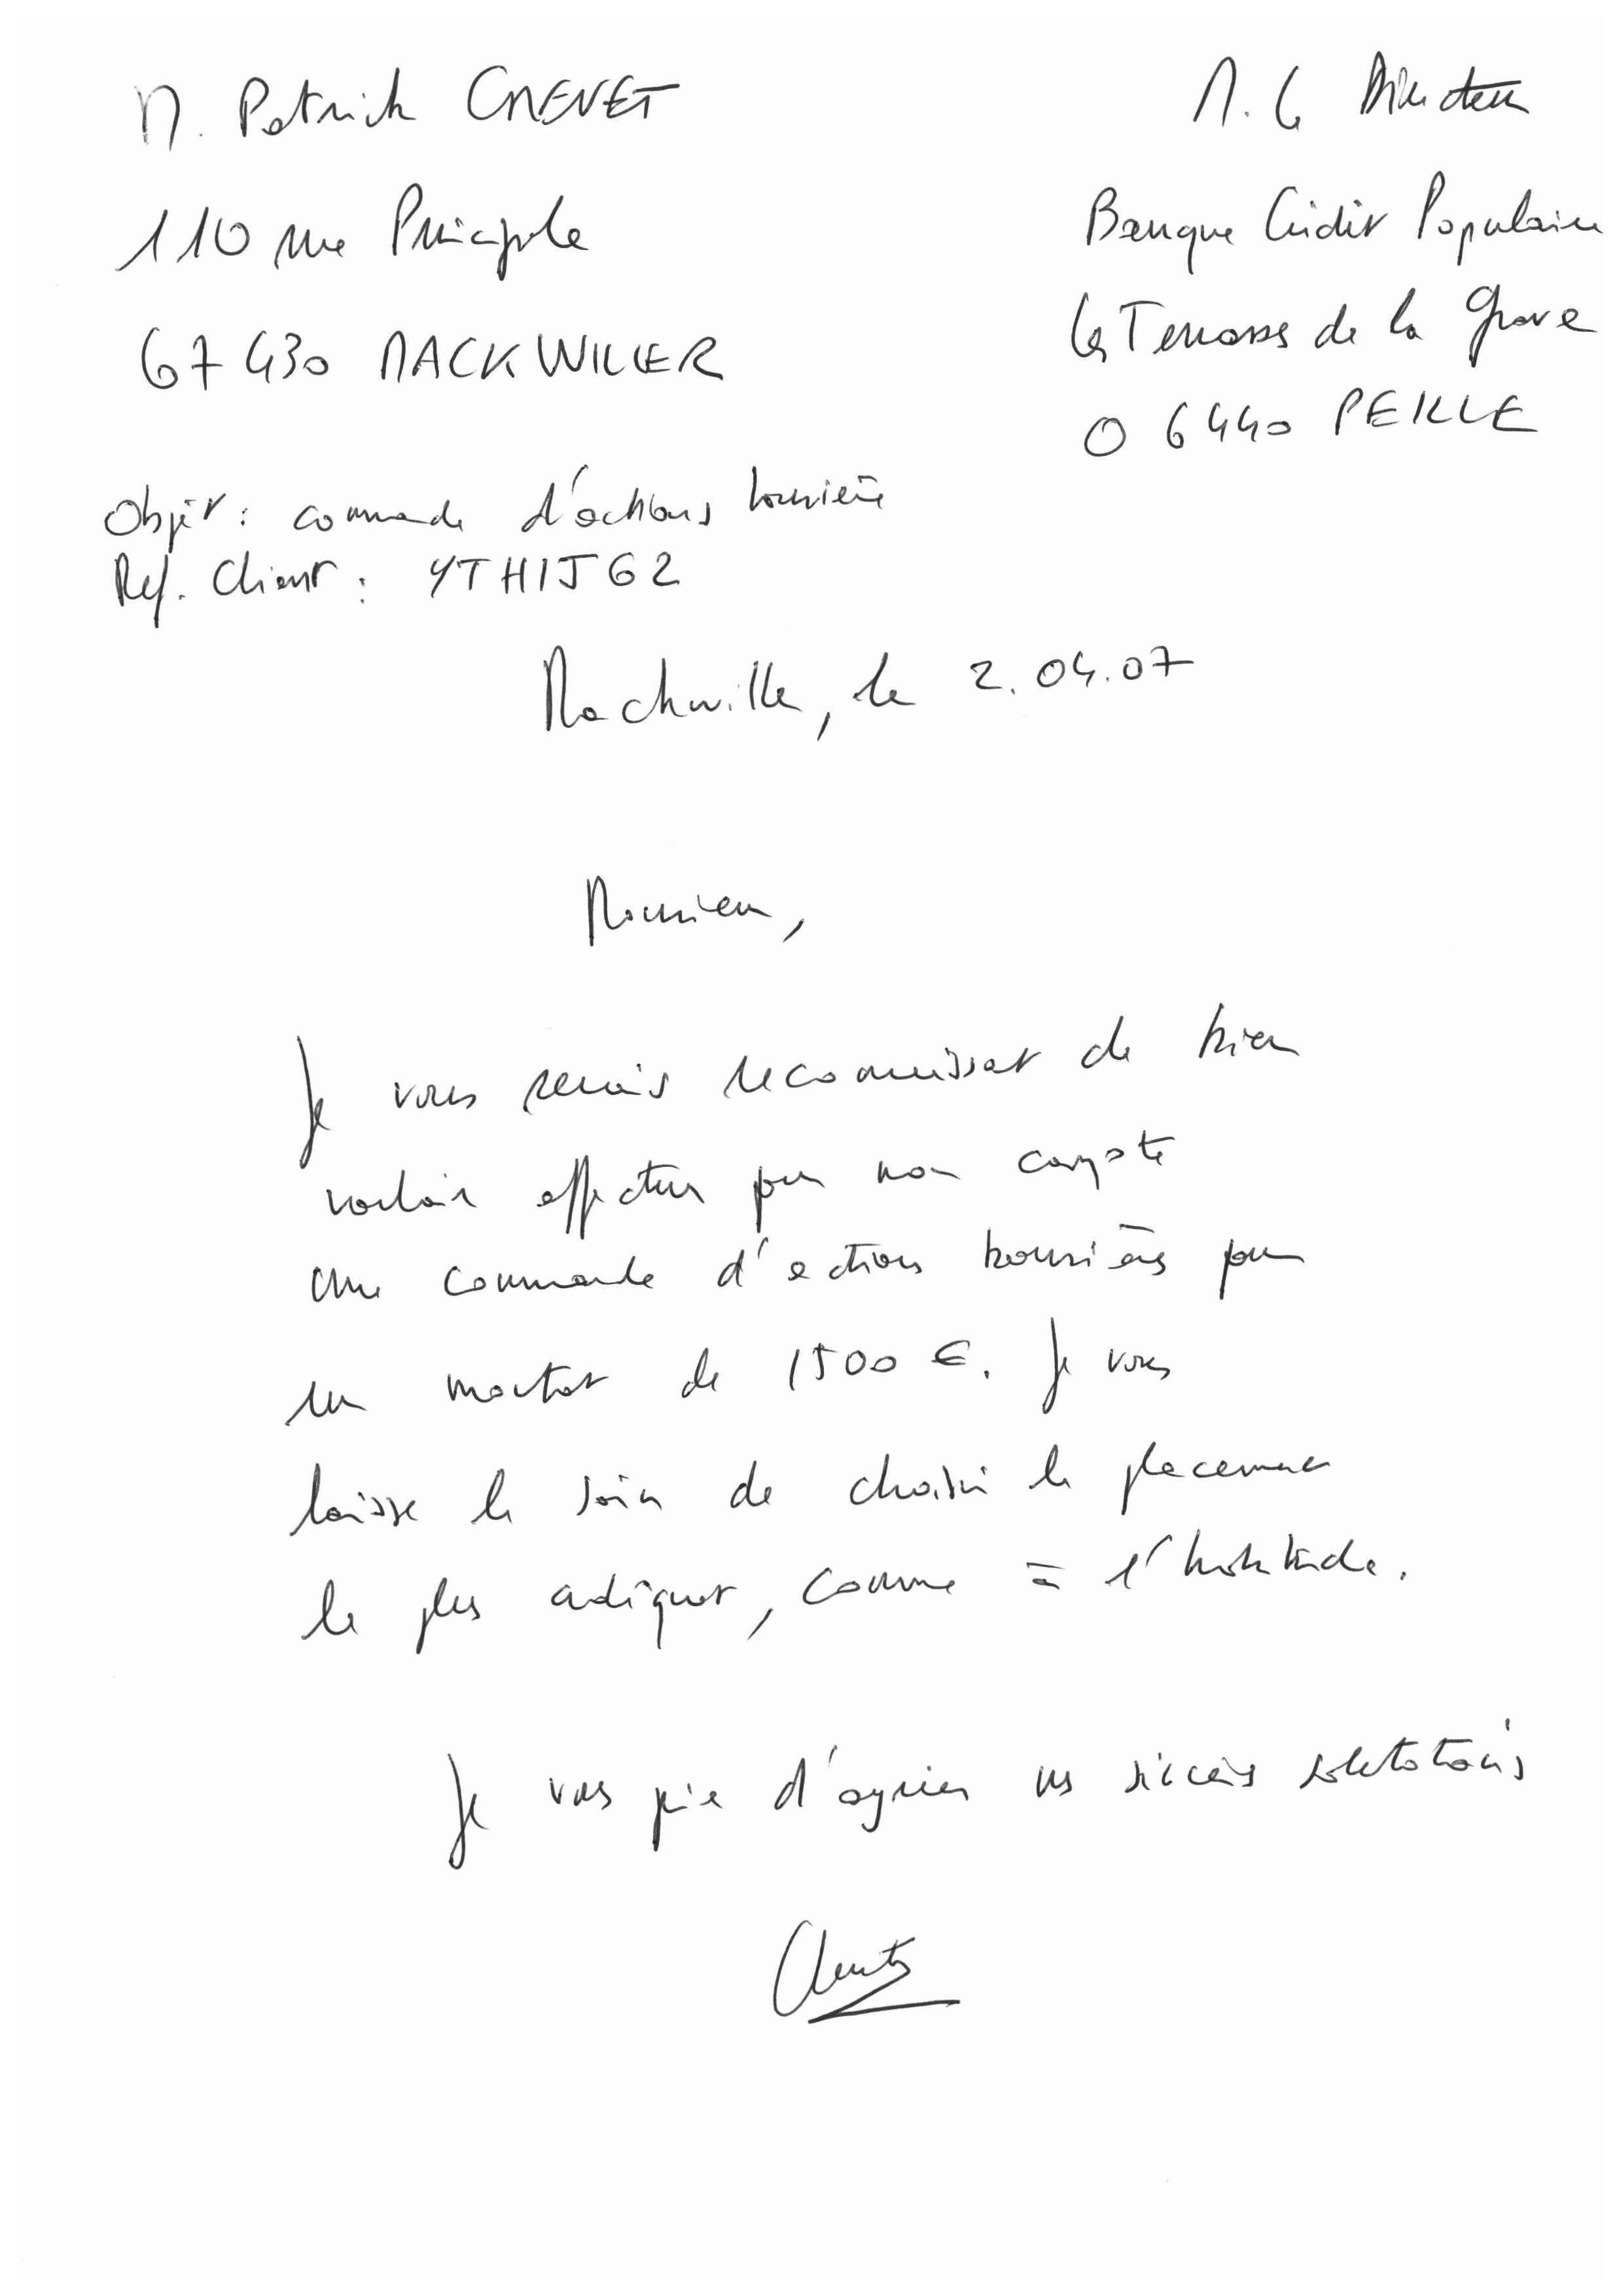 M. Patrick CHEVET
110 rue Principale
67430 MACKWILLER
M. le Directeur
Banque Crédit Populaire
Les Terrasses de la Grave
06440 PEILLE
Objet : commande d'actions boursières
Ref. Client : YTHIJ62
Mackwille, le 2.04.07
Monsieur,
Je vous serais reconnaissant de bien
vouloir effectuer pour mon compte
une commande d'actions boursières pour
un montant de 1500 €. Je vous
laisse le soin de choisir le placement
le plus adéquat, comme à l'habitude.
Je vous prie d'agréer mes sincères salutations